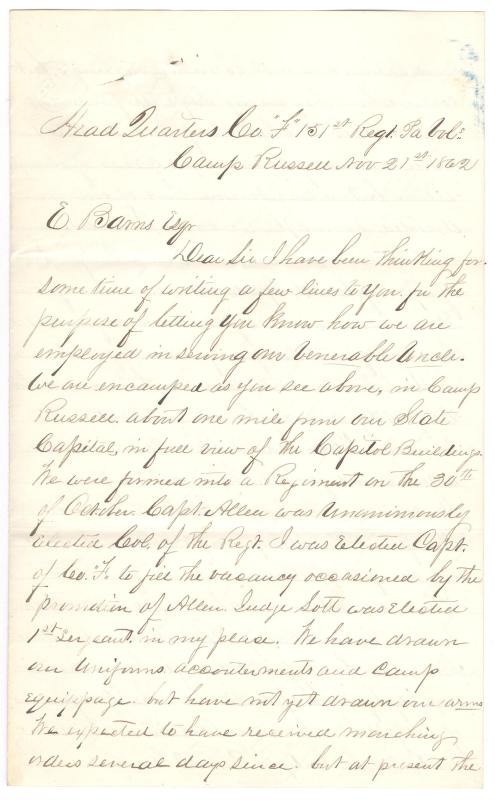 Head Quarters Co. "F" 151st Regt. Pa Vols
Camp Russell Nov 21st 1862
E. Barns Esqr
Dear Sir I have been thinking for
some time of writing a few lines to you. for the
purpose of letting you know how we are
employed in serving our venerable Uncle.
We are encamped as you see above, in Camp
Russell. about one mile from our State
Capital, in full view of the Capitol Buildings.
We were formed into a Regiment on the 30th
of October. Capt. Allen was unanimously
elected Col. of the Regt. I was Elected Capt.
of Co. "F" to fill the vacancy occasioned by the
promotion of Allen. Judge Sott was Elected
1st Sergeant. in my place. We have drawn
our uniforms accouterments and camp
equippage. but have not yet drawn our arms
We expected to have received marching
orders several days since. but at present the